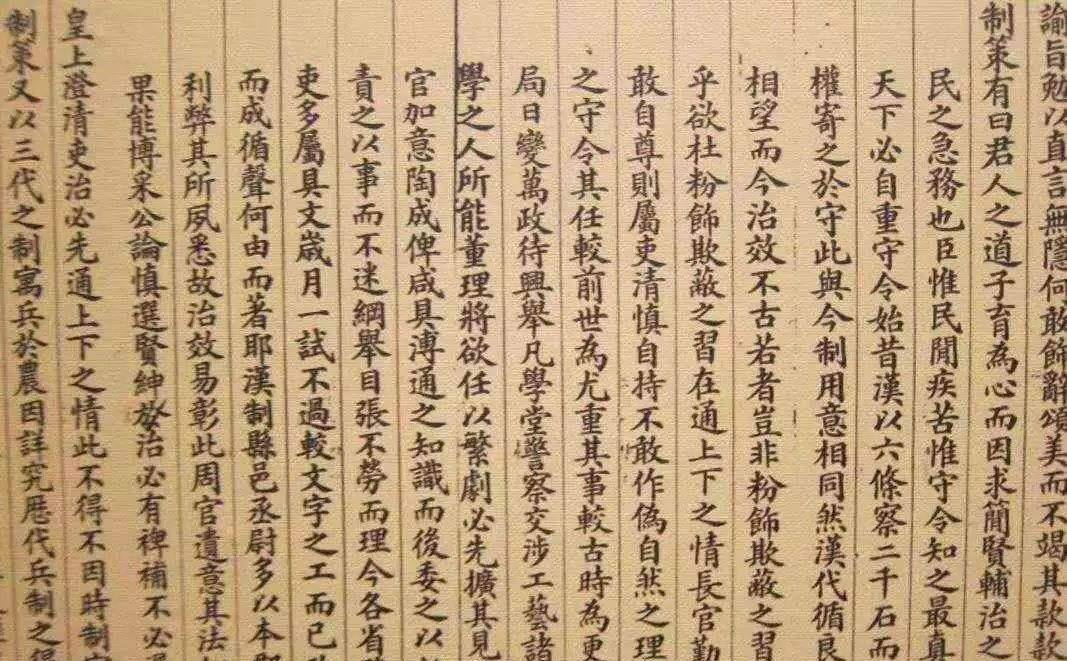 諭旨勉以直言無隱何敢飾辭頌美而不竭其款款
制策有曰君人之道子育為心而因求簡賢輔治之
民之急務也臣惟民間疾苦惟守令知之最真
天下必自重守令始昔漢以六條察二千石而
權寄之於守此與今制用意相同然漢代循良
相望而今治效不古若者豈非粉飾欺蔽之習
乎欲杜粉飾欺蔽之習在通上下之情長官勤
敢自尊則屬吏清慎自持不敢作偽自然之理
之守令其任較前世為尤重其事較古時為更
局日變萬政待興舉凡學堂警察交涉工藝諸
學之人所能董理將欲任以繁劇必先擴其見
官加意陶成俾咸具溥通之知識而後委之以
責之以事而不迷綱舉目張不勞而理今各省
吏多屬具文歲月一試不過較文字之工而已
而成循聲何由而著耶漢制縣邑丞尉多以本郡
利弊其所夙悉故治效易彰此周官遺意其法
果能博采公論慎選賢紳於治必有裨補不必
皇上澄清吏治必先通上下之情此不得不因時制
制策又以三代之制寓兵於農因詳究歷代兵制之得